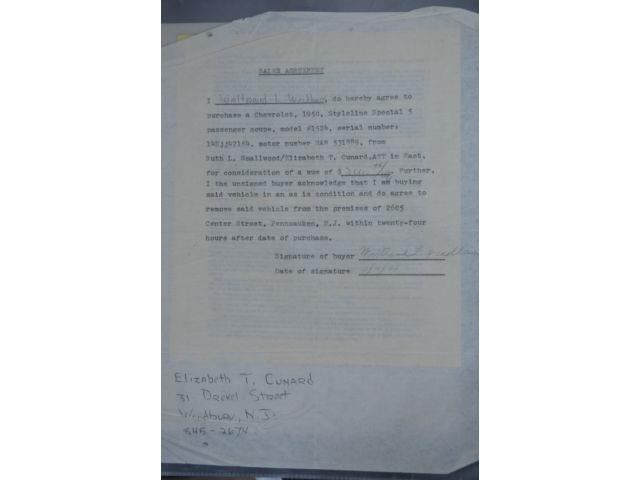 SALES AGREEMENT
I, do hereby agree to
purchase a Chevrolet, 1950, Styleline Special 5
passenger coupe, model #1524, serial number:
14HJJ47164, motor number HAM 531889, from
Ruth L. Smallwood/Elizabeth T. Cunard,ATT in Fact,
for consideration of a sum of $. Further,
I the unsigned buyer acknowledge that I am buying
said vehicle in an as is condition and do agree to
remove said vehicle from the premises of 2605
Center Street, Pennsauken, N.J. within twenty-four
hours after date of purchase.
Signature of buyer
Date of signature
Elizabeth T. Cunard
31 Drexel Street
Woodbury, N.J.
845-2674